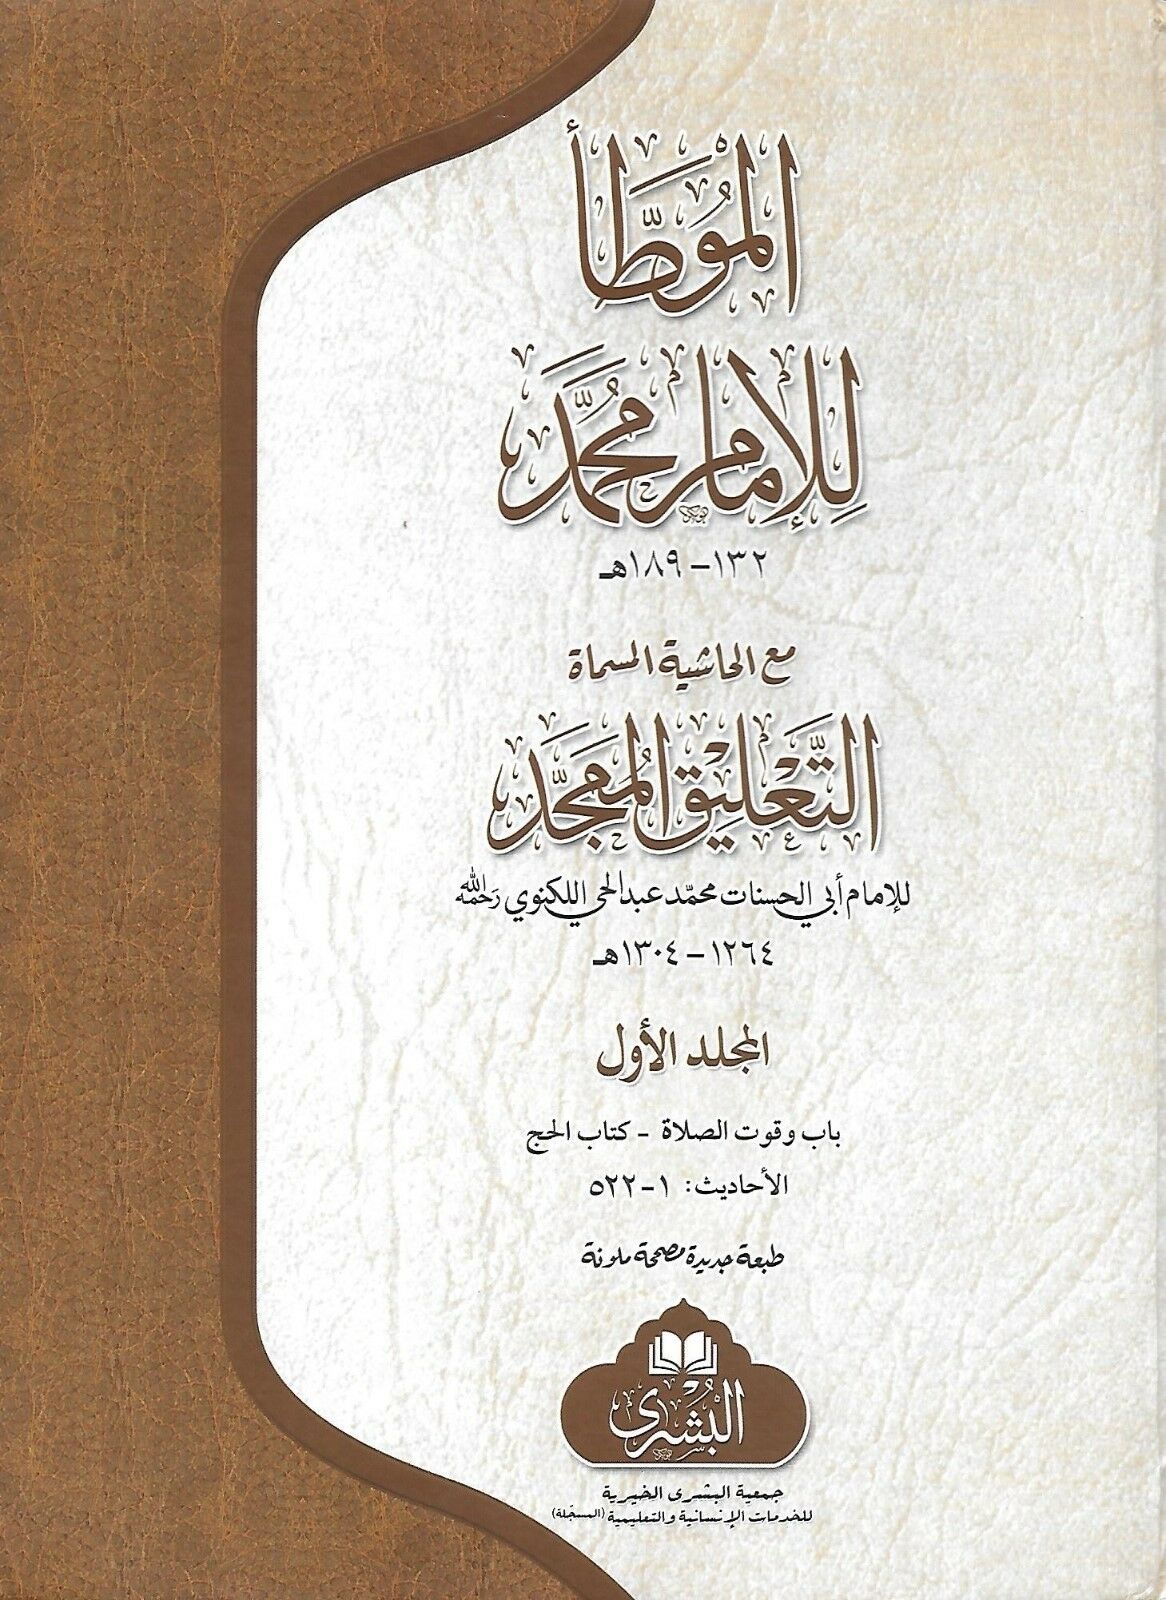 الموطَّأ
لِلإمام محمَّد
١٣٢ – ١٨٩هـ
مع الحاشية المسماة
التَّعْليْق المُمَجَّد
للإمام أبي الحسنات محمّد عبد الحي اللكنوي رحمه الله
١٢٦٤ – ١٣٠٤هـ
المجلد الأول
باب وقوت الصلاة - كتاب الحج
الأحاديث: ١-٥٢٢
طبعة جديدة مصححة ملونة
البُشْرى
جمعية البشرى الخيرية
للخدمات الإنسانية والتعليمية (المسجّلة)